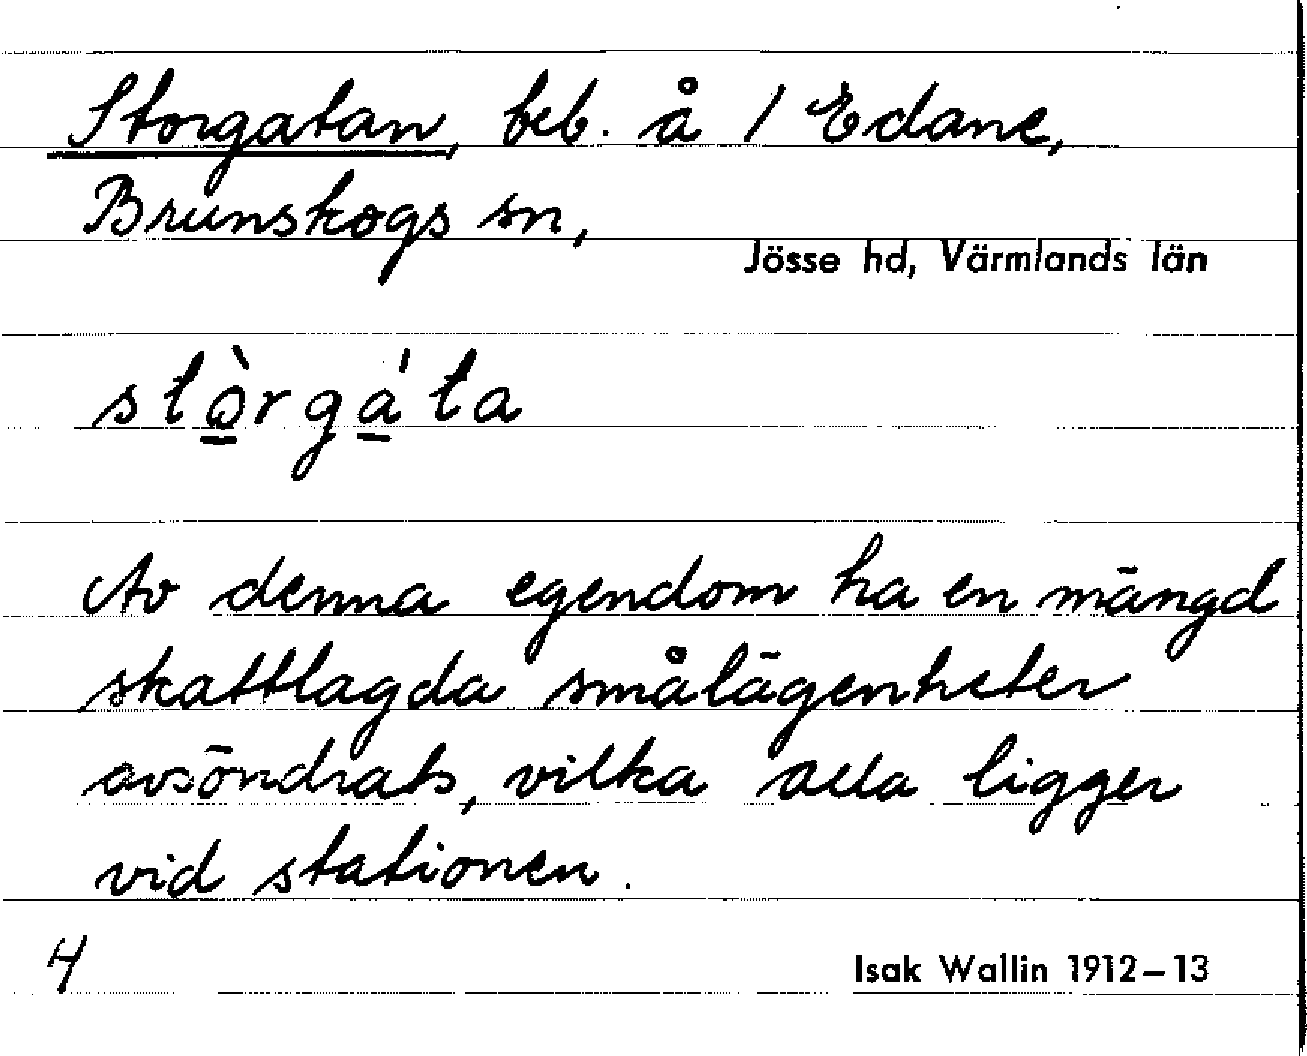 Storgatan, beb. å 1 Edane,
Brunskogs sn,
Jösse hd, Värmlands län
stò̱rga̱'ta
Av denna egendom ha en mängd
skattlagda smålägenheter
avsöndrats, vilka alla ligger
vid stationen.
4
Isak Wallin 1912–13